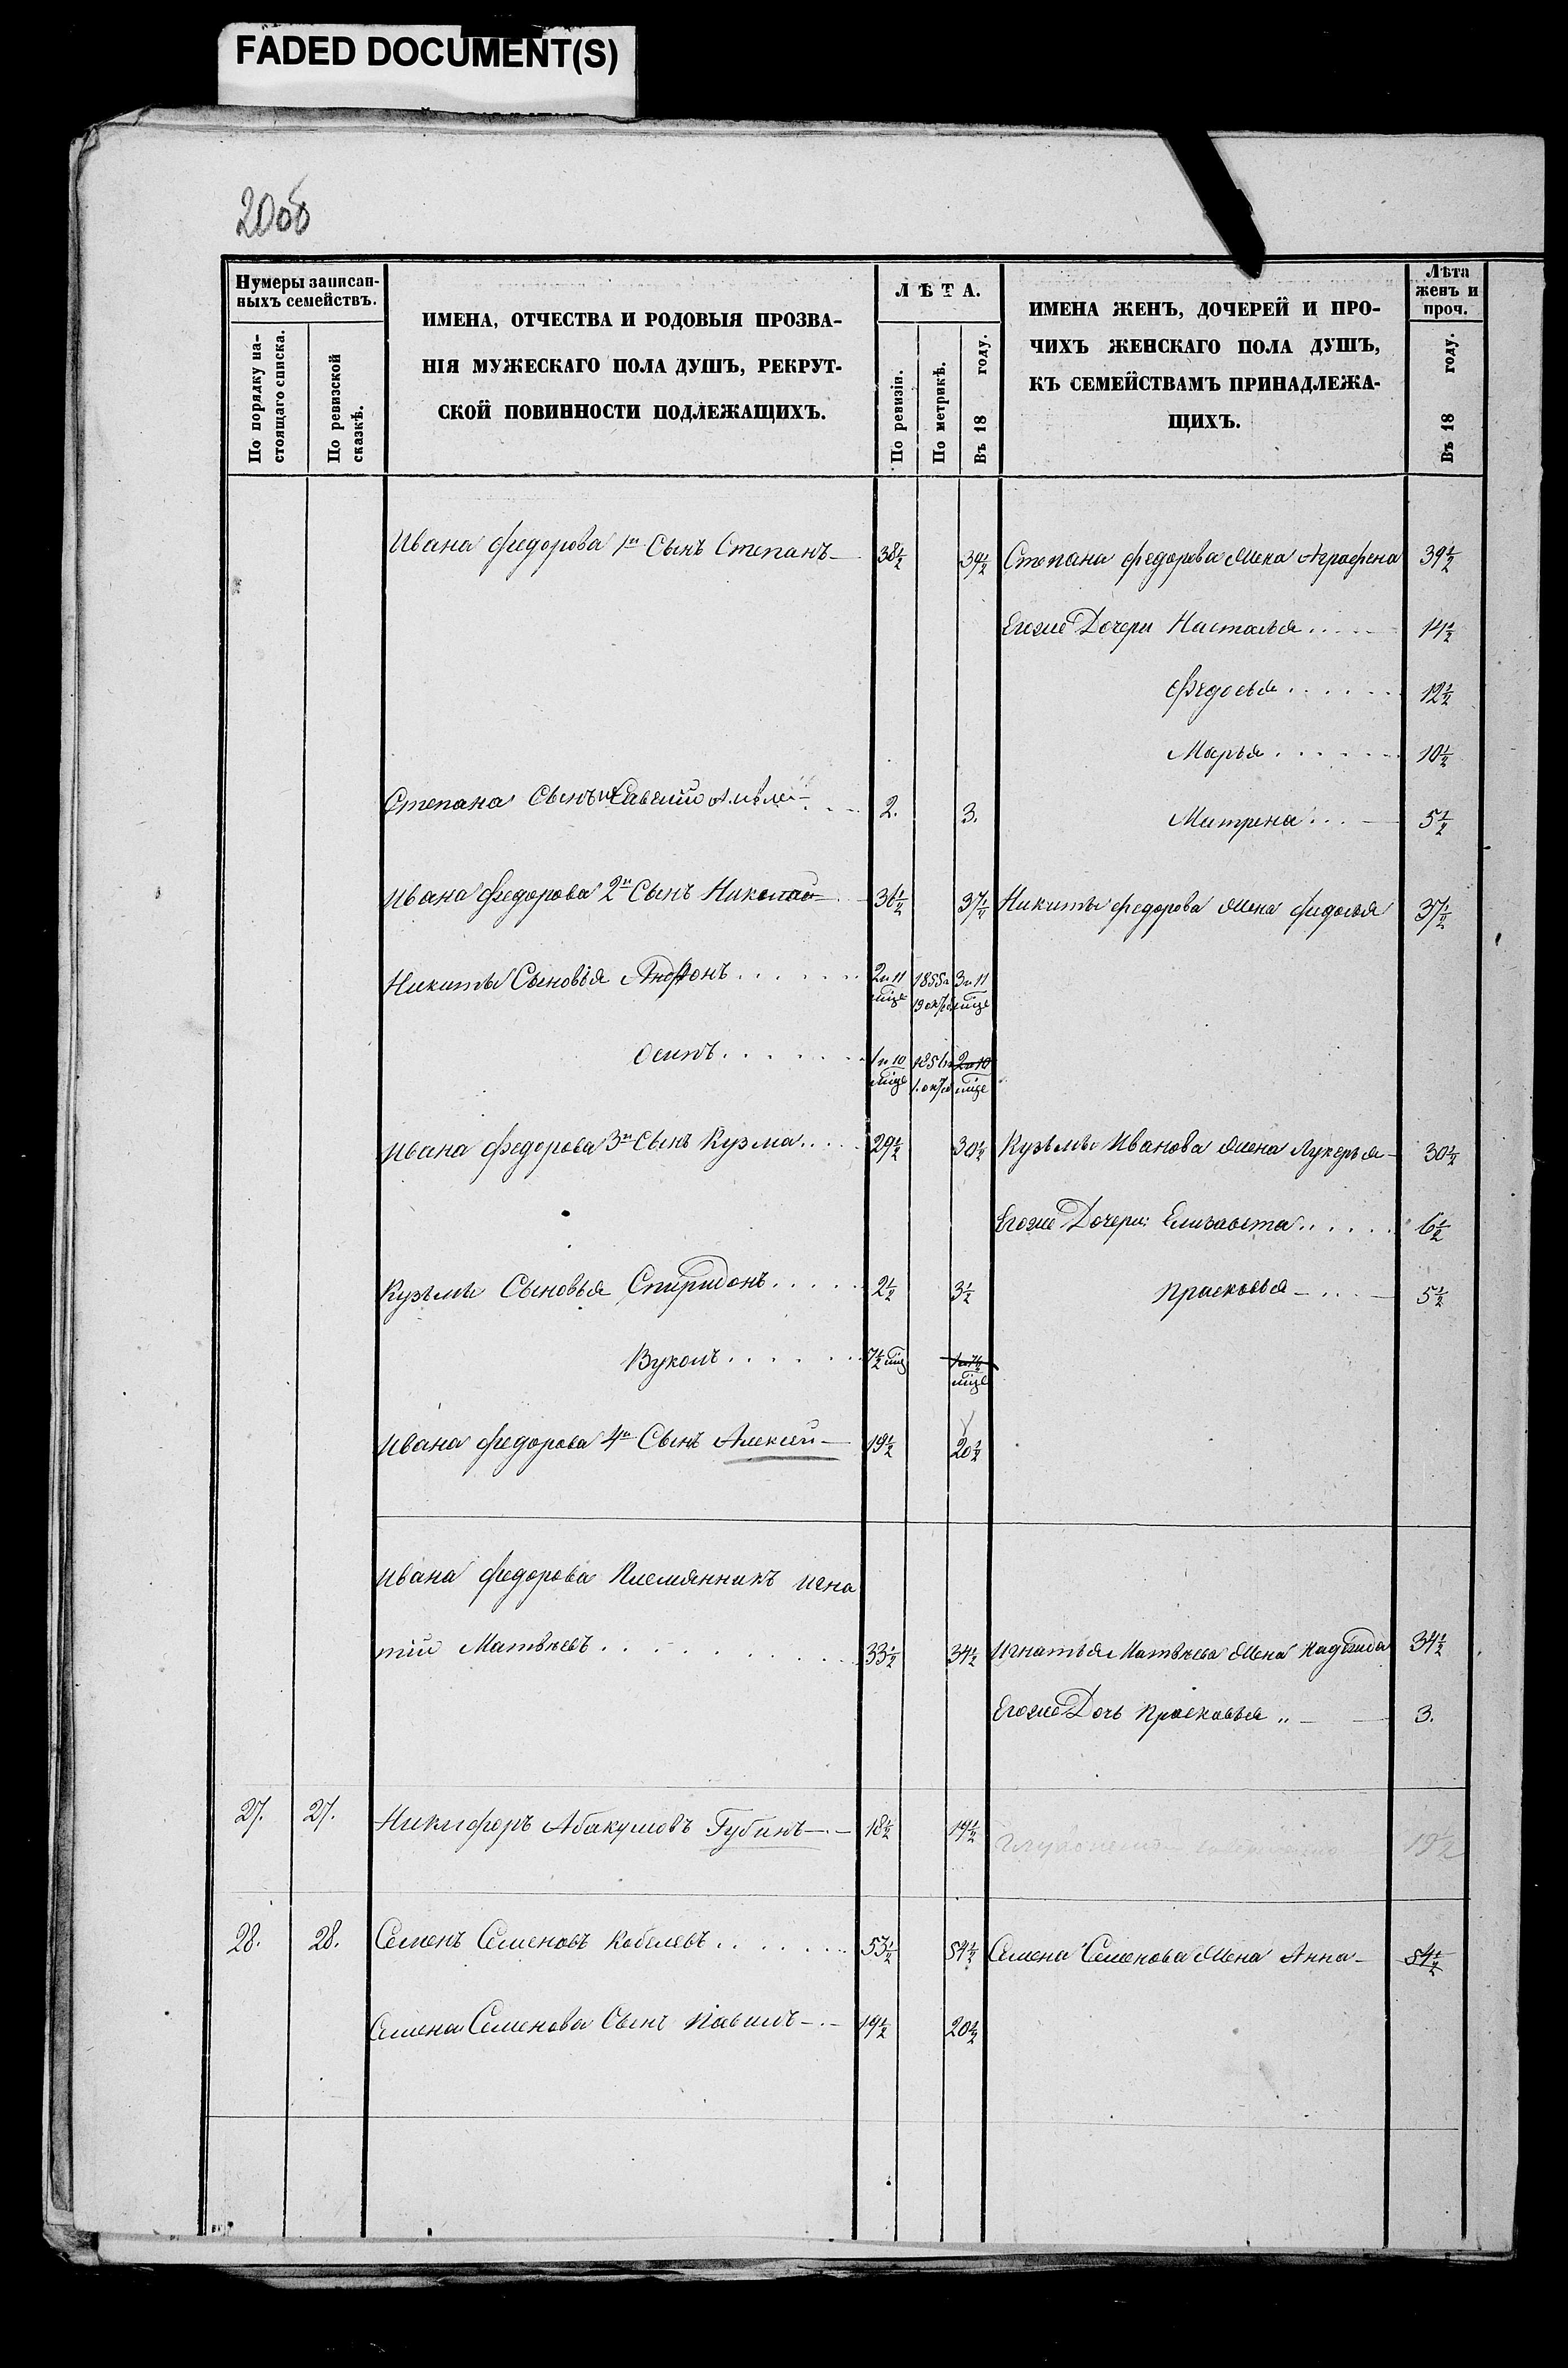 FADED DOCUMENT(S)
200об
Нумеры записан-
ныхъ семействъ.
По порядку на-
стоящаго списка.
По ревизской
сказкѣ.
ИМЕНА, ОТЧЕСТВА И РОДОВЫЯ ПРОЗВА-
НІЯ МУЖЕСКАГО ПОЛА ДУШЪ, РЕКРУТ-
СКОЙ ПОВИННОСТИ ПОДЛЕЖАЩИХЪ.
ЛѢТА.
По ревизіи.
По метрикѣ.
Въ 18 году.
ИМЕНА ЖЕНЪ, ДОЧЕРЕЙ И ПРО-
ЧИХЪ ЖЕНСКАГО ПОЛА ДУШЪ,
КЪ СЕМЕЙСТВАМЪ ПРИНАДЛЕЖА-
ЩИХЪ.
Лѣта
женъ и
проч.
Въ 18 году.
Ивана Федорова 1й Сынъ Степанъ 38½ 39½ Степана Федорова Жена Аграфена 39½
Егоже Дочери Насталья 14½
Федосья 12½
Марья 10½
Степана Сынъ Савелій 2. 3. Матрена 5½
Ивана Федорова 2й Сынъ 36½ 37½ Никиты Федорова Жена Федосья 37½
Никиты Сыновья 2 и 11 мѣце 1855 19 окт 3 и 11 мѣце
Осипъ 1 и 10 мѣце 1856 1 окт 2 и 10 мѣце
Ивана Федорова 3й Сынъ Кузма 29½ 30½ Кузьмы Иванова Жена Лукерья 30½
Егоже Дочери: Елизавета 6½
Кузьмы Сыновья Спиридонъ 2½ 3½ Прасковья 5½
Вуколъ 7½ мѣц 1 и 7½ мѣце
Ивана Федорова 4й Сынъ Алексей 19½ 20½
Ивана Федорова Племянникъ Игна
тій Матвѣевъ 33½ 34½ Игнатья Матвѣева Жена Надежда 34½
Егоже Дочь Прасковья 3.
27. 27. Никифоръ Абакумовъ Губинъ 18½ 19½ 19½
28. 28. Семенъ Семеновъ Кобелевъ 53½ 54½ Семена Семенова Жена Анна 54½
Семена Семенова Сынъ Павелъ 19½ 20½